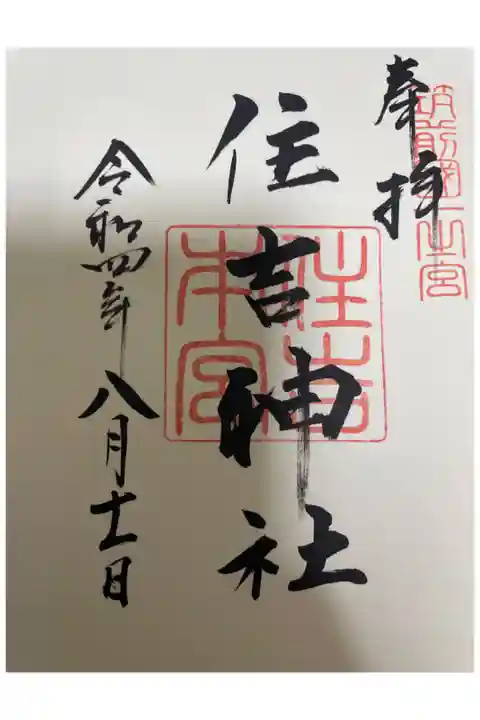 奉拝
筑前國一之宮
住吉神社
住吉本宮
令和四年八月十一日